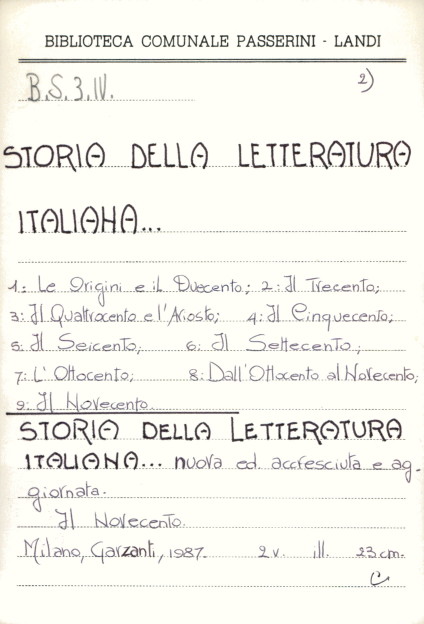 BIBLIOTECA COMUNALE PASSERINI - LANDI
B.S.3.IV. 2)
STORIA DELLA LETTERATURA
ITALIANA...
1: Le Origini e il Duecento; 2: Il Trecento;
3: Il Quattrocento e l'Ariosto; 4: Il Cinquecento;
5: Il Seicento; 6: Il Settecento;
7: L'Ottocento; 8: Dall'Ottocento al Novecento;
9: Il Novecento.
STORIA DELLA LETTERATURA
ITALIANA... nuova ed. accresciuta e ag-
giornata.
Il Novecento.
Milano, Garzanti, 1987. 2 v. ill. 23 cm.